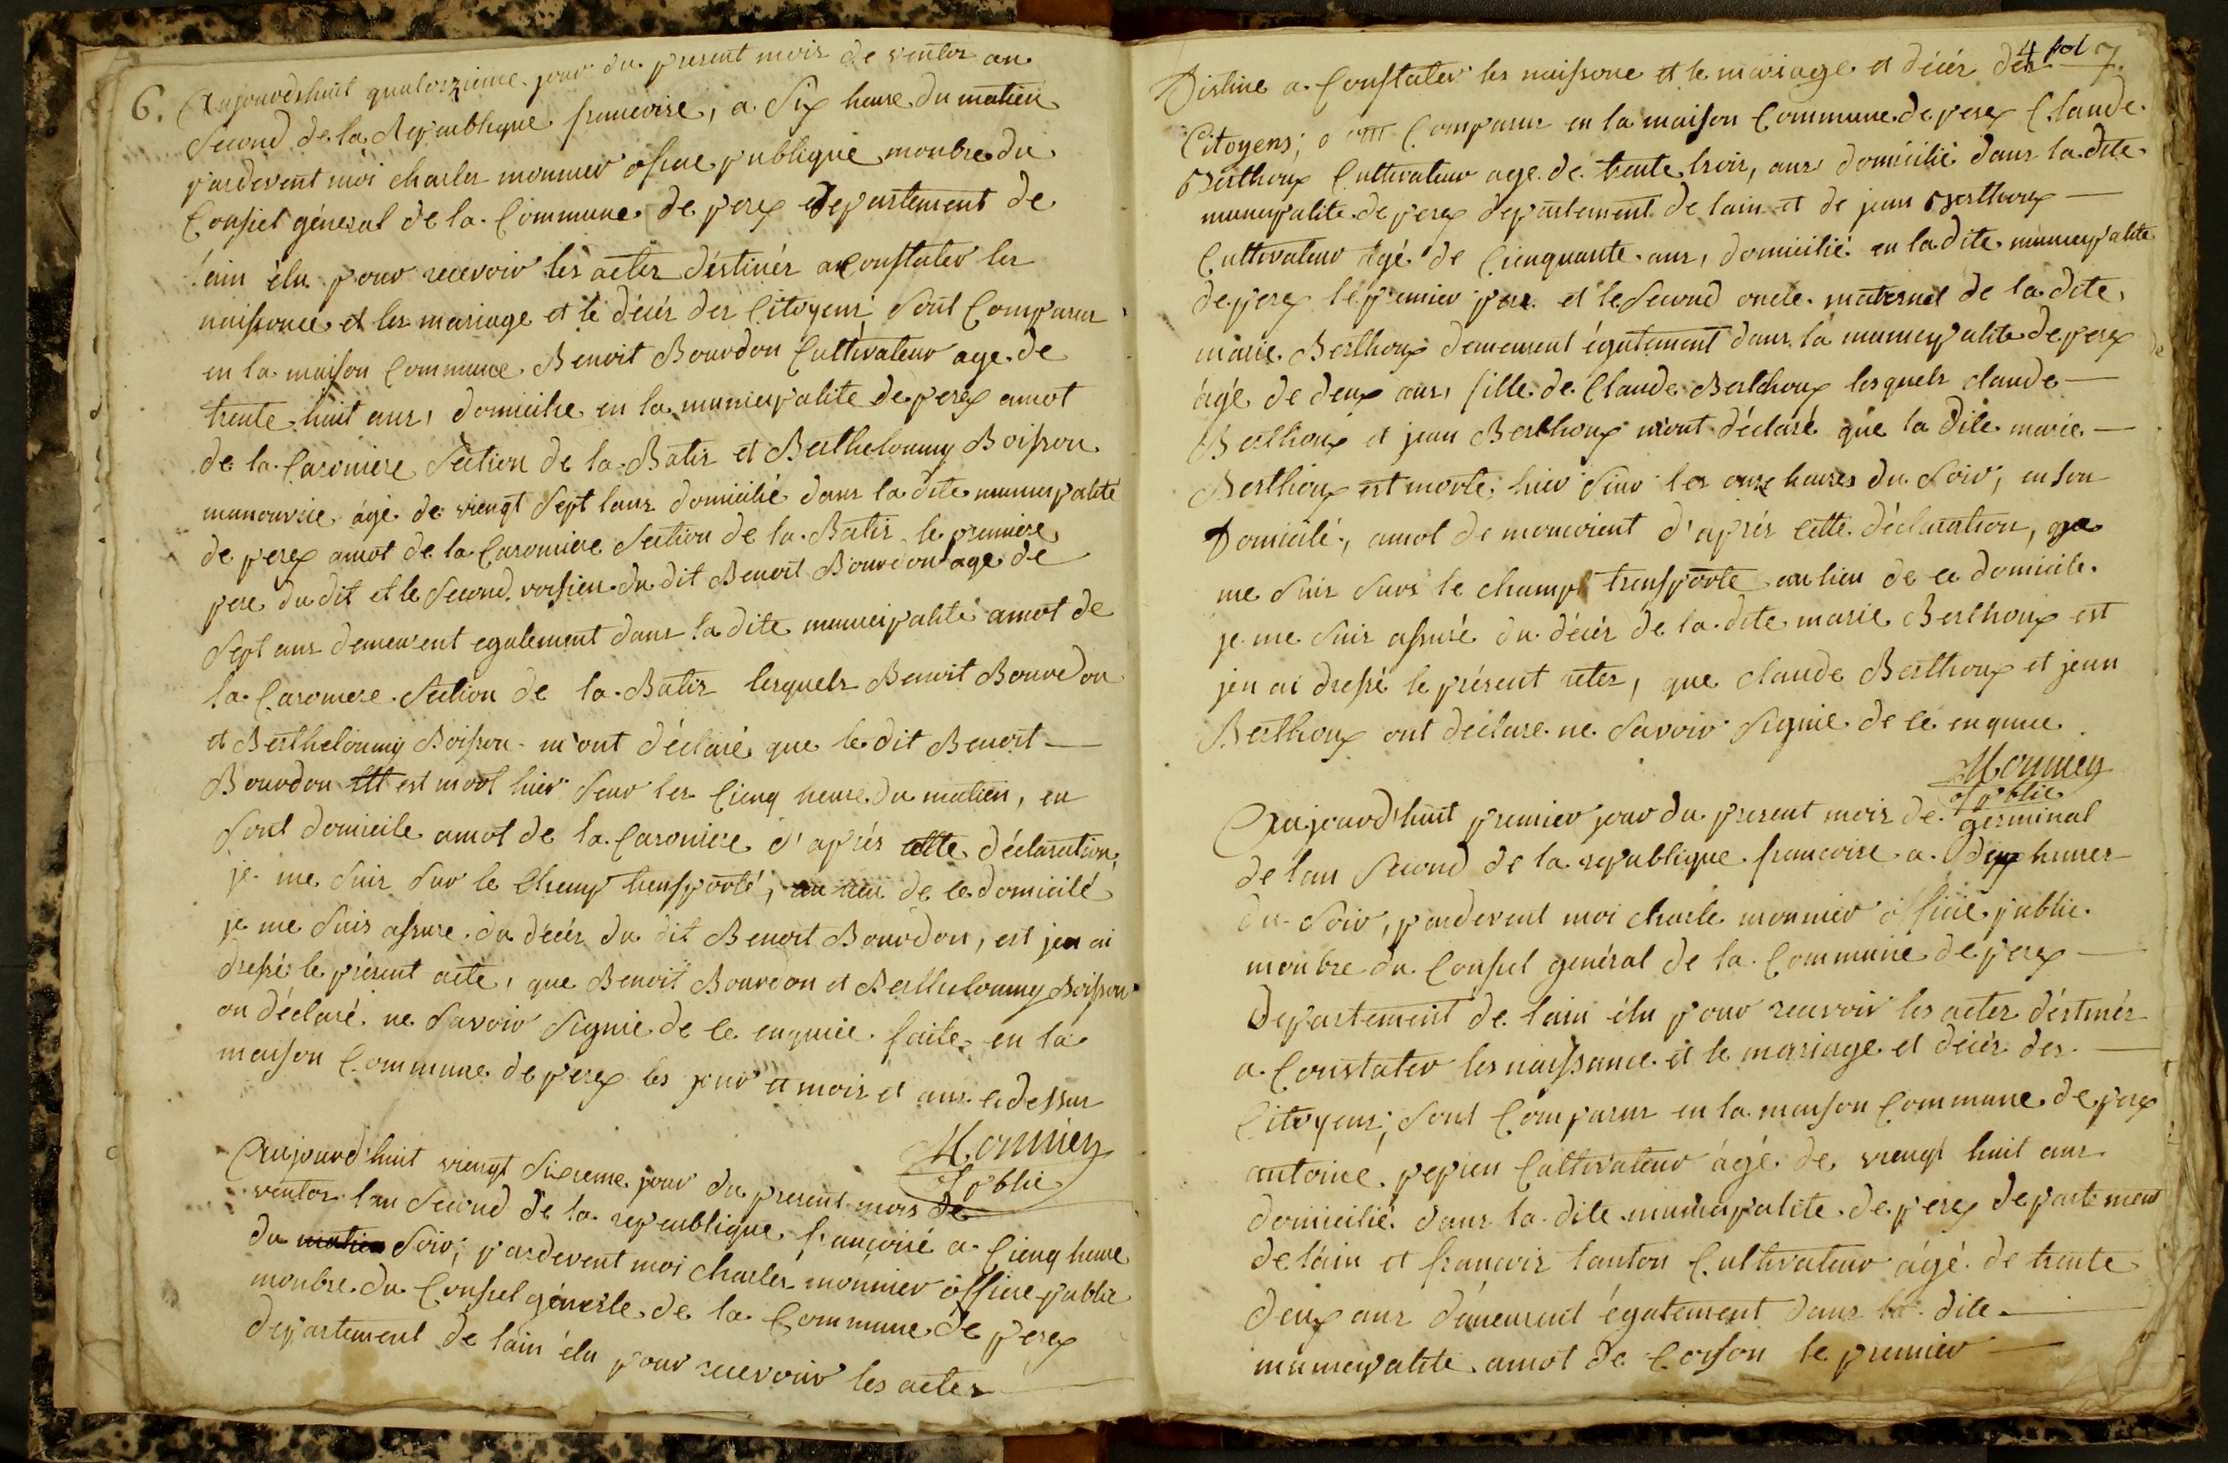 6. Aujourdshuit quatorzieme jour du present mois de ventos an
Second de la Republique francoise, a Six heure du matien
pardevent moi charles monnier ofice publique monbre du
Consiel géneral de la Commune de perex departement de
lain élu pour recevoir les actes déstinés a constater les
naissance et les mariage et le décés des Citoyens Sont Comparus
en la maison Commune Benoit Bourdon Cultivateur age de
trente huit ans, domicilie en la municipalite de perex amot
de la Caroniere Section de la Batis et Berthelommy Boisson
manouvrie ágé de viengt Sept lans domicilié dans la dite municipalité
de perex amot de la Caroniere Section de la Batis le premiere
pere du dit et le Second voisien du dit Benoit Bourdon age de
Sept ans demeurent egalement dans la dite municipalité amot de
la Caroniere Section de la Batis lesquels Benoit Bourdon
et Berthelommy Boisson m'ont déclaré que le dit Benoit
Bourdon est mort hier Seur les Cienq heure du matien, en
Sont domicile amot de la Caroniere d'aprés cette déclaration,
je me Suis Sur le Champ transporté, au lieu de ce domicilé
je me Suis assure du décés du dit Benoit Bourdon, est jen ai
dressé le présent acte, que Benoit Bourdon et Berthelommy Boisson
on déclaré ne Savoir Signie de ce enquiie faite en la
maison Commune de perex les jour et mois et ans cidessus
Monnier
of publie
Aujourd'huit viengt Sixieme jour du present mois de
ventos lan Second de la republique francoise a Cienq heure
du matien Soir, pardevent moi charles monnier office publie
monbre du Consiel génerale de la Commune de perex
departement de lain élu pour recevoir les actes
4 fol 7.
Distine a Constater les naissone et le mariage et décés des
Citoyens; Comparus en la maison Commune de perex Claude
Berthoux Cultivateur age de trente trois, ans domicilié dans la dite
municipalite de perex departement de lain et de jean Berthoux
Cultivateur ágé de Cienquante ans, domicilié en la dite municipalite
de perex le premier pere et le Second oncle maternel de la dite
marie Berthoux demement également dans la municipalite de perex
ágé de deux ans, fille de Claude Berthoux lesquels claude
Berthoux et jean Berthoux m'ont déclaré que la dite marie
Berthoux est morte hier Seur les onze heures du Soir, en Son
Domicilé, amot de d'aprés cette déclaration, ge
me Suis Surs le champt transporte au lieu de ce domicile
je me Suis assuré du décés de la dite marie Berthoux est
jen ai dressé le présent actes, que claude Berthoux et jean
Berthoux ont déclare ne Savoir Signie de ce enquiie
Monnier
of publie
Aujourd'huit premier jour du present mois de germinal
de lan Second de la republique francoise a deux heures
du Soir, pardevent moi charle monnier office public
monbre du Consiel genéral de la Commune de perex
Departement de lain élu pour recevoir les actes déstinés
a Constater les naissance et le mariage et décés des
Citoyens, Sont Comparus en la maison Commune de perex
antoine pepien Cultivateur ágé de viengt huit ans
domicilié dans la dite municipalite de perex departement
de lain et francois lanton Cultivateur ágé de trente
deux ans demeurent également dans la dite
municipalite amot de Corson le premier